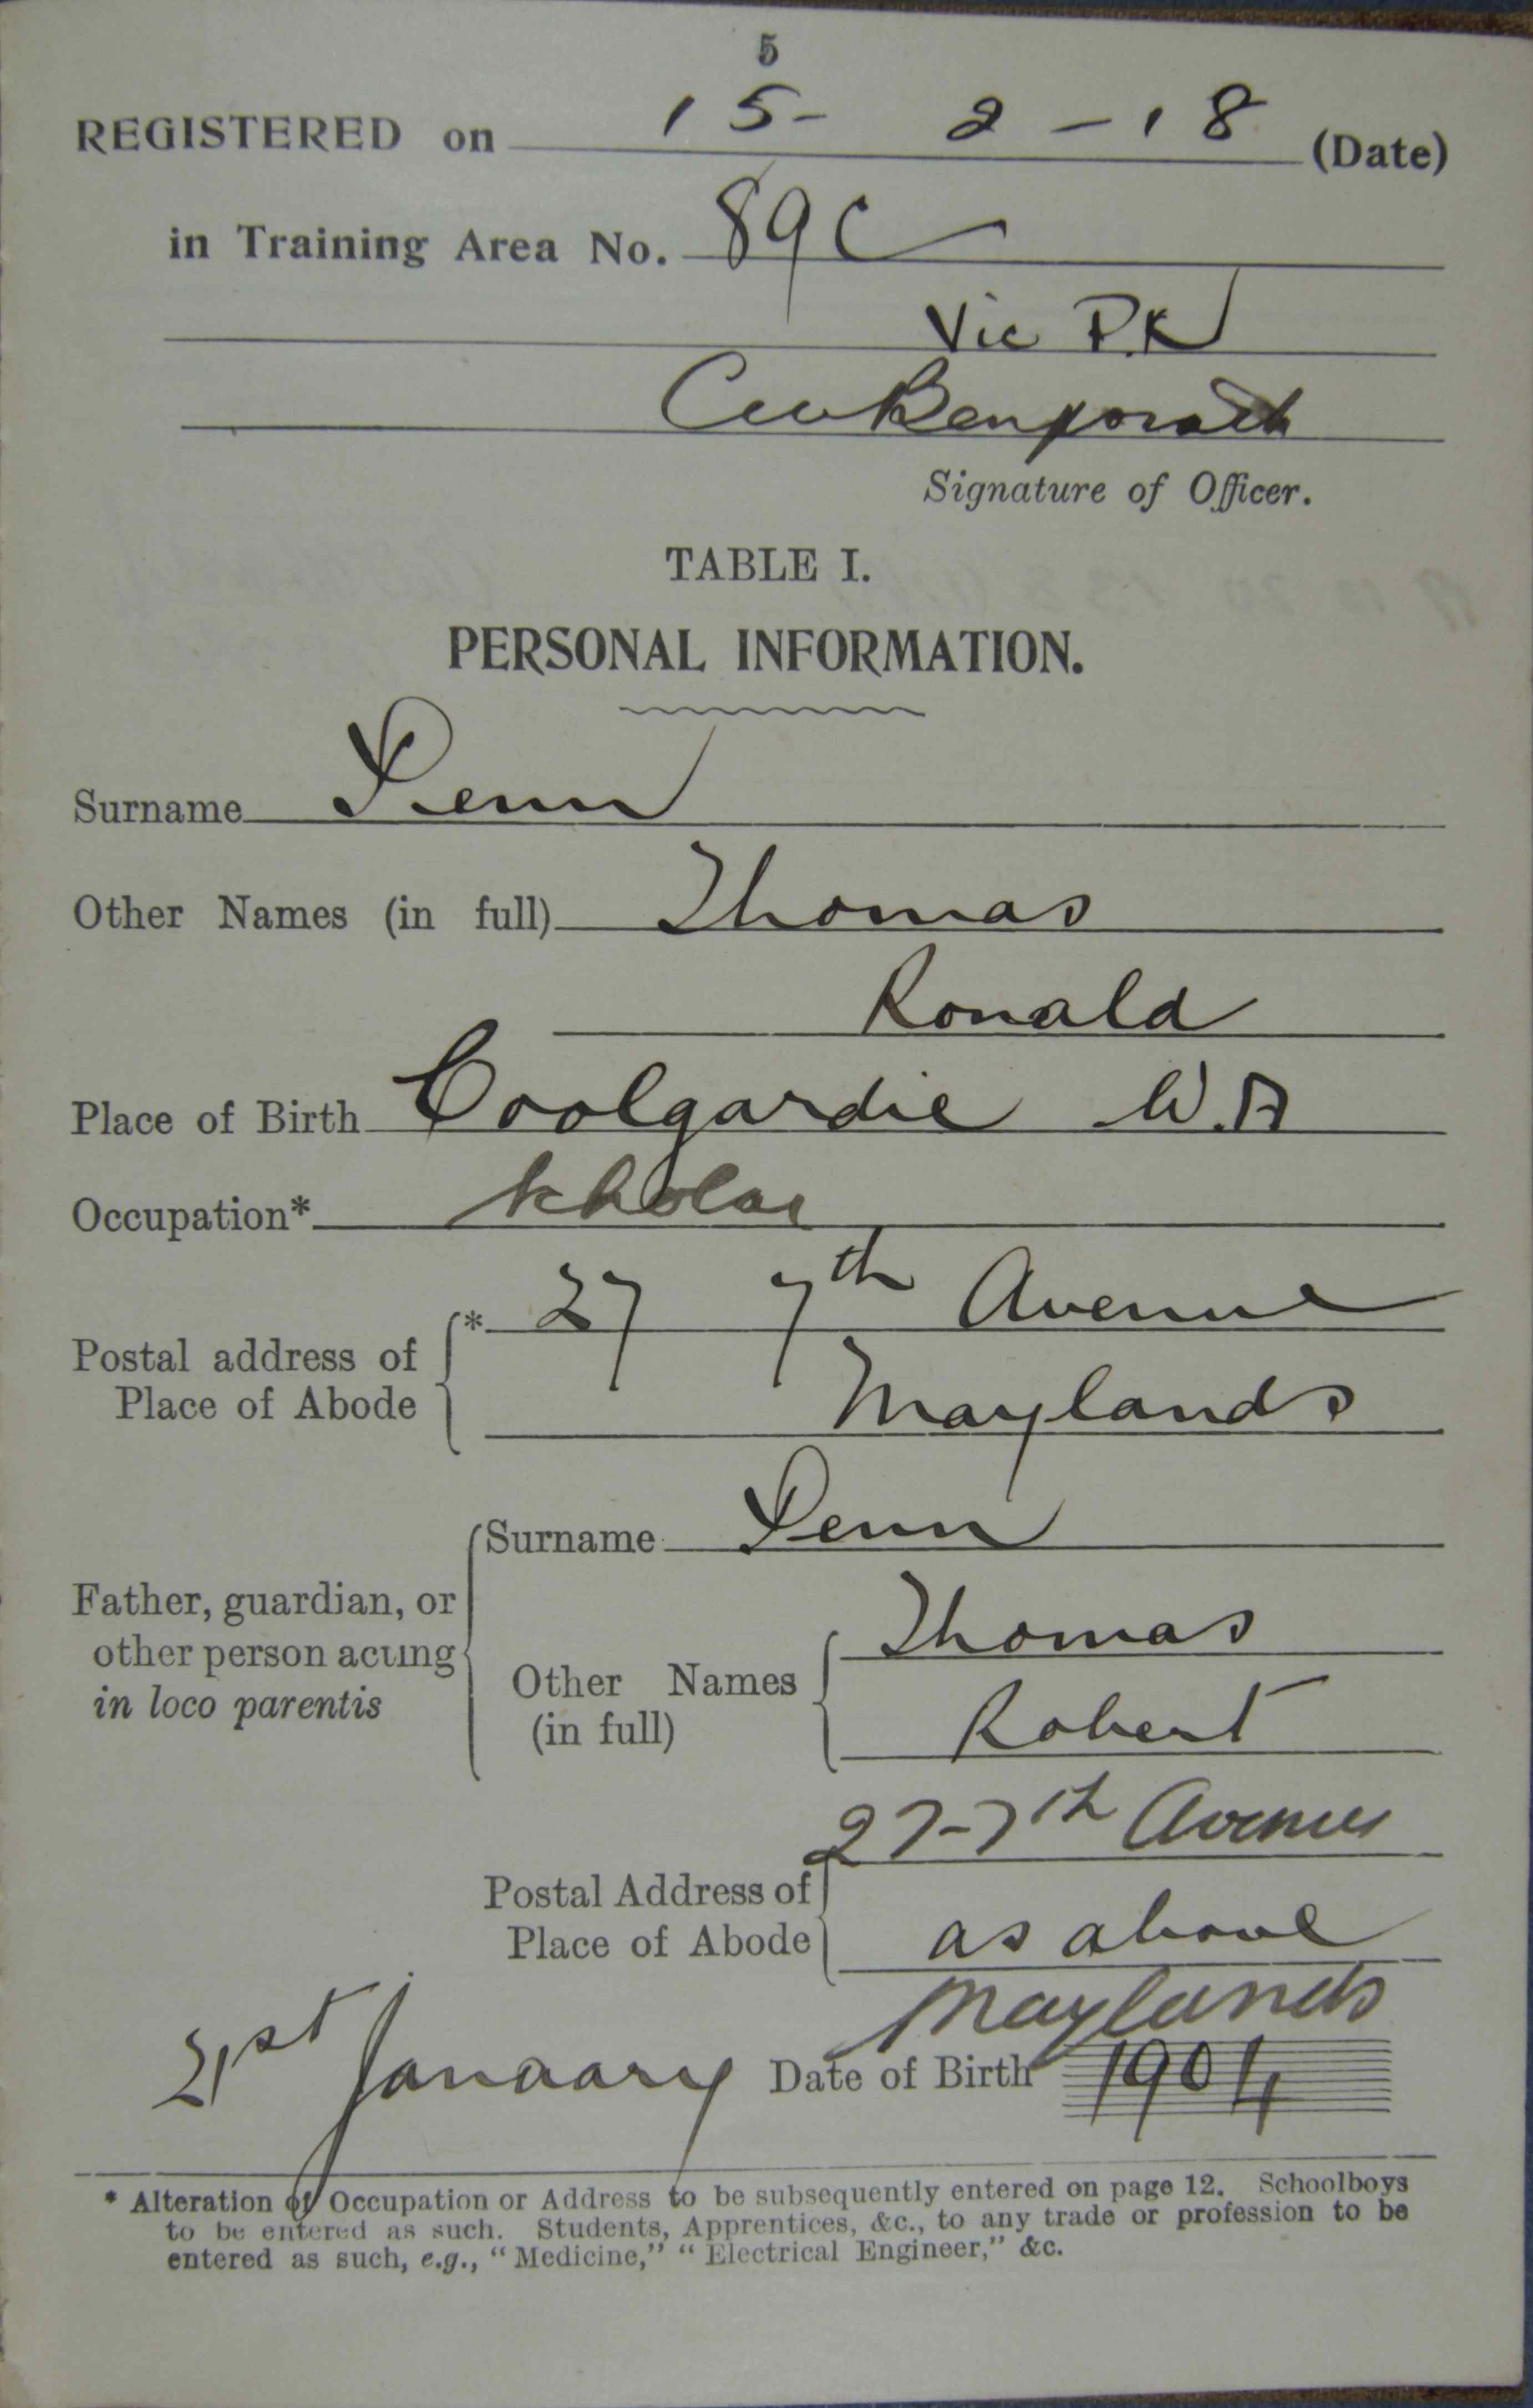 5
REGISTERED on 15- 2 - 18 (Date)
in Training Area No. 89C
Vic P.K
Signature of Officer.
TABLE I.
PERSONAL INFORMATION.
Surname Penn
Other Names (in full) Thomas
Ronald
Place of Birth Coolgardie W.A
Occupation* scholar
* 27 7th Avenue
Postal address of
Place of Abode
Maylands
Surname Penn
Father, guardian, or
other person acting
in loco parentis
Thomas
Other Names
(in full)
Robert
27-7th Avenue
Postal Address of
Place of Abode
as above
Maylands
21st January Date of Birth 1904
* Alteration of Occupation or Address to be subsequently entered on page 12. Schoolboys
to be entered as such. Students, Apprentices, &c., to any trade or profession to be
entered as such, e.g., “Medicine,” “Electrical Engineer,” &c.